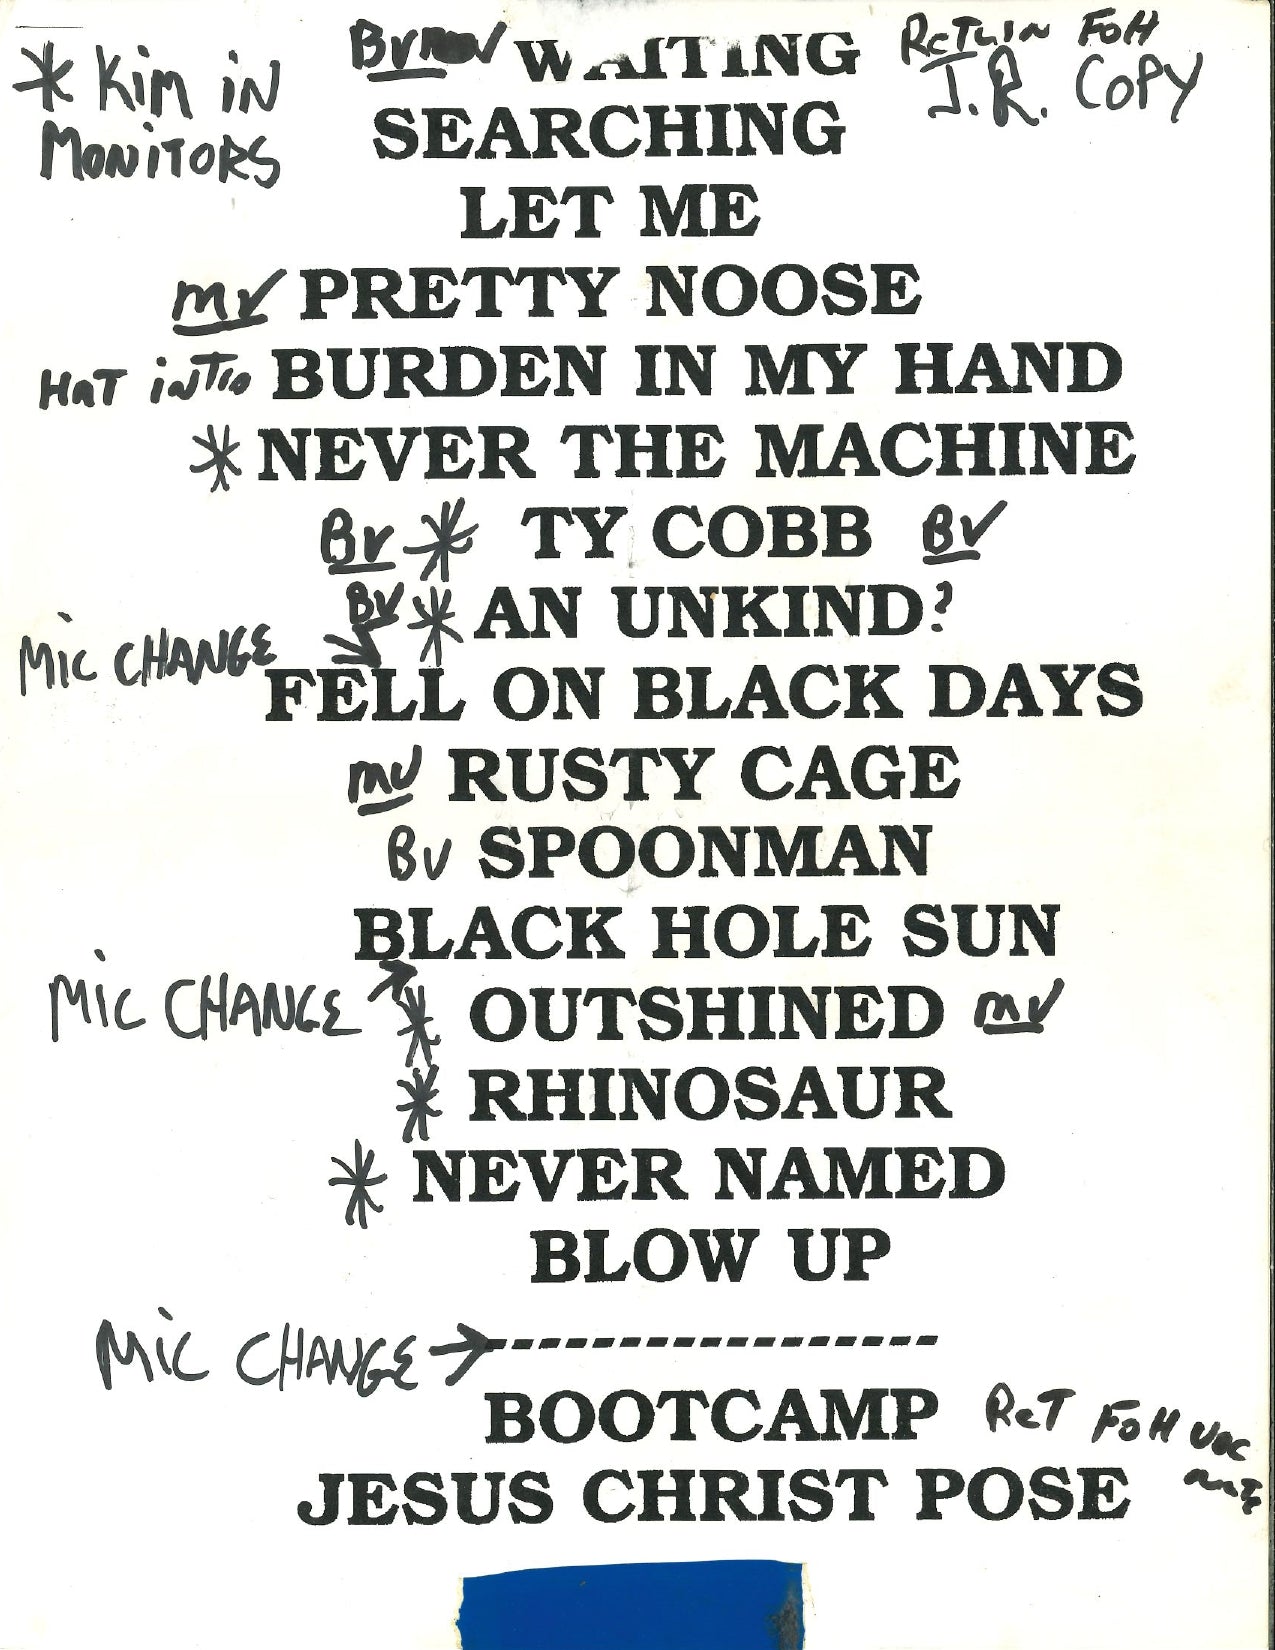 Bv WAITING RETURN FOH
* KIM IN MONITORS
J.R. COPY
SEARCHING
LET ME
mv PRETTY NOOSE
HAT INTRO BURDEN IN MY HAND
* NEVER THE MACHINE
BV * TY COBB BV
BV * AN UNKIND?
MIC CHANGE
FELL ON BLACK DAYS
mv RUSTY CAGE
BV SPOONMAN
BLACK HOLE SUN
MIC CHANGE → * OUTSHINED mv
* RHINOSAUR
* NEVER NAMED
BLOW UP
MIC CHANGE → ------------------
BOOTCAMP RET FOH VOC
JESUS CHRIST POSE